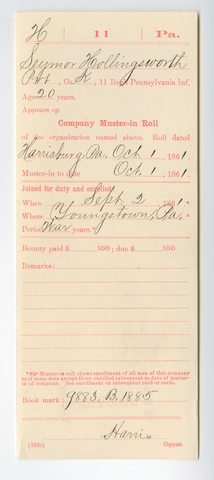 H 11 Pa.
Seymor Hollingsworth
Pvt., Co. K, 11 Reg't Pennsylvania Inf.
Age 20 years.
Appears on
Company Muster-in Roll
of the organization named above. Roll dated
Harrisburg, Pa. Oct 1, 1861.
Muster-in to date Oct 1, 1861.
Joined for duty and enrolled
When Sept 2, 1861.*
Where Youngstown, Pa.
Period War years.*
Bounty paid $ 186 ; due $ 186
Remarks:
of same date except those enrolled subsequent to date of muster-
in of company. See enrollment on subsequent card or cards.
Book mark: 9883, B, 1885
Harris
(356c) Copyist.